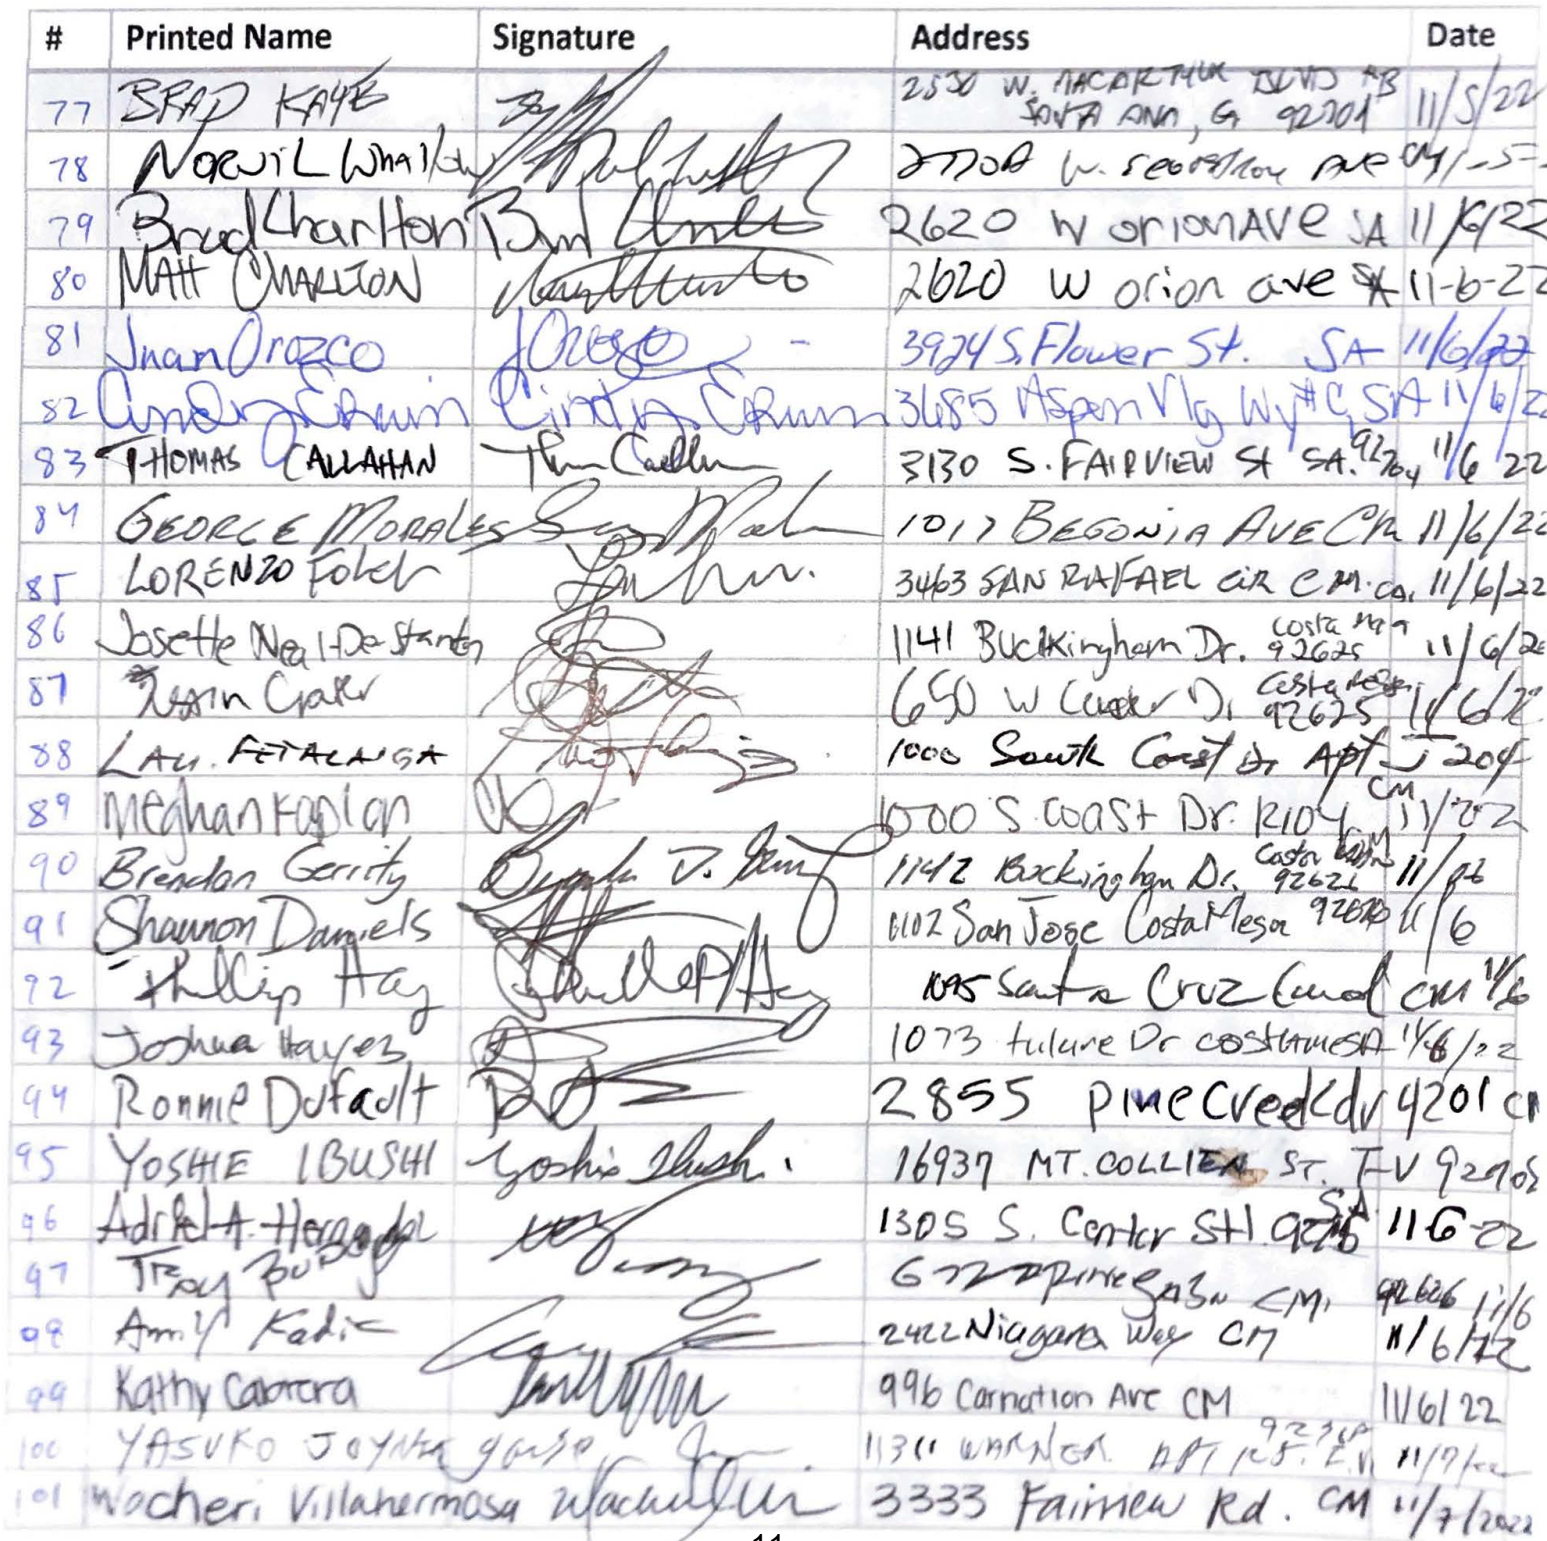 # Printed Name Signature Address Date
77 BRAD KAYE 2530 W. MACARTHUR BLVD #B
SANTA ANA, CA 92704 11/5/22
78 NORVIL W. Ave CM
79 Brad Charlton 2620 W orion AVE SA 11/6/22
80 MATT CHARLTON 2620 W orion ave SA 11-6-22
81 Juan Orozco JOrozco 3924 S. Flower St. SA 11/6/22
82 Cindy Erwin Cindy Erwin 3685 Aspen Vlg Wy #C, SA 11/6/22
83 THOMAS CALLAHAN 3130 S. FAIRVIEW St SA. 92704 11/6/22
84 GEORGE MORALES 1017 BEGONIA AVE CM 11/6/22
85 LORENZO 3463 SAN RAFAEL CIR C.M. CA. 11/6/22
86 Josette Neal-De Stanton 1141 Buckingham Dr. Costa Mesa 92625 11/6/22
87 650 W Dr Costa Mesa 92625 11/6/22
88 LAU. FETALAUGA 1000 South Coast Dr Apt J 204
CM
89 Meghan Kaplan 1000 S. COAST Dr. R104 CM 11/22
90 Brendan Gerrity 1142 Buckingham Dr. Costa Mesa 92626 11/06
91 Shannon Daniels 1102 San Jose Costa Mesa 92626 11/6
92 Phillip Hay 1095 Santa Cruz CM 11/6
93 Joshua Hayes 1073 tulare Dr costamesa 11/6/22
94 Ronnie Dufault 2855 pine Creek dr 4201 CM
95 YOSHIE IBUSHI Yoshie Ibushi. 16937 MT. COLLIER ST. F-V 92708
96 Adriel A. Hernandez 1305 S. Center St SA 11-6-22
97 Troy CM, 92626 11/6
98 Amly Kadic 2422 Niagara Way CM 11/6/22
99 Kathy Cabrera 996 Carnation Ave CM 11/6/22
100 YASUKO JOYNER 11311 WARNER APT F.V. 11/7/22
101 Wocheri Villahermosa 3333 Fairview Rd. CM 11/7/2022
11